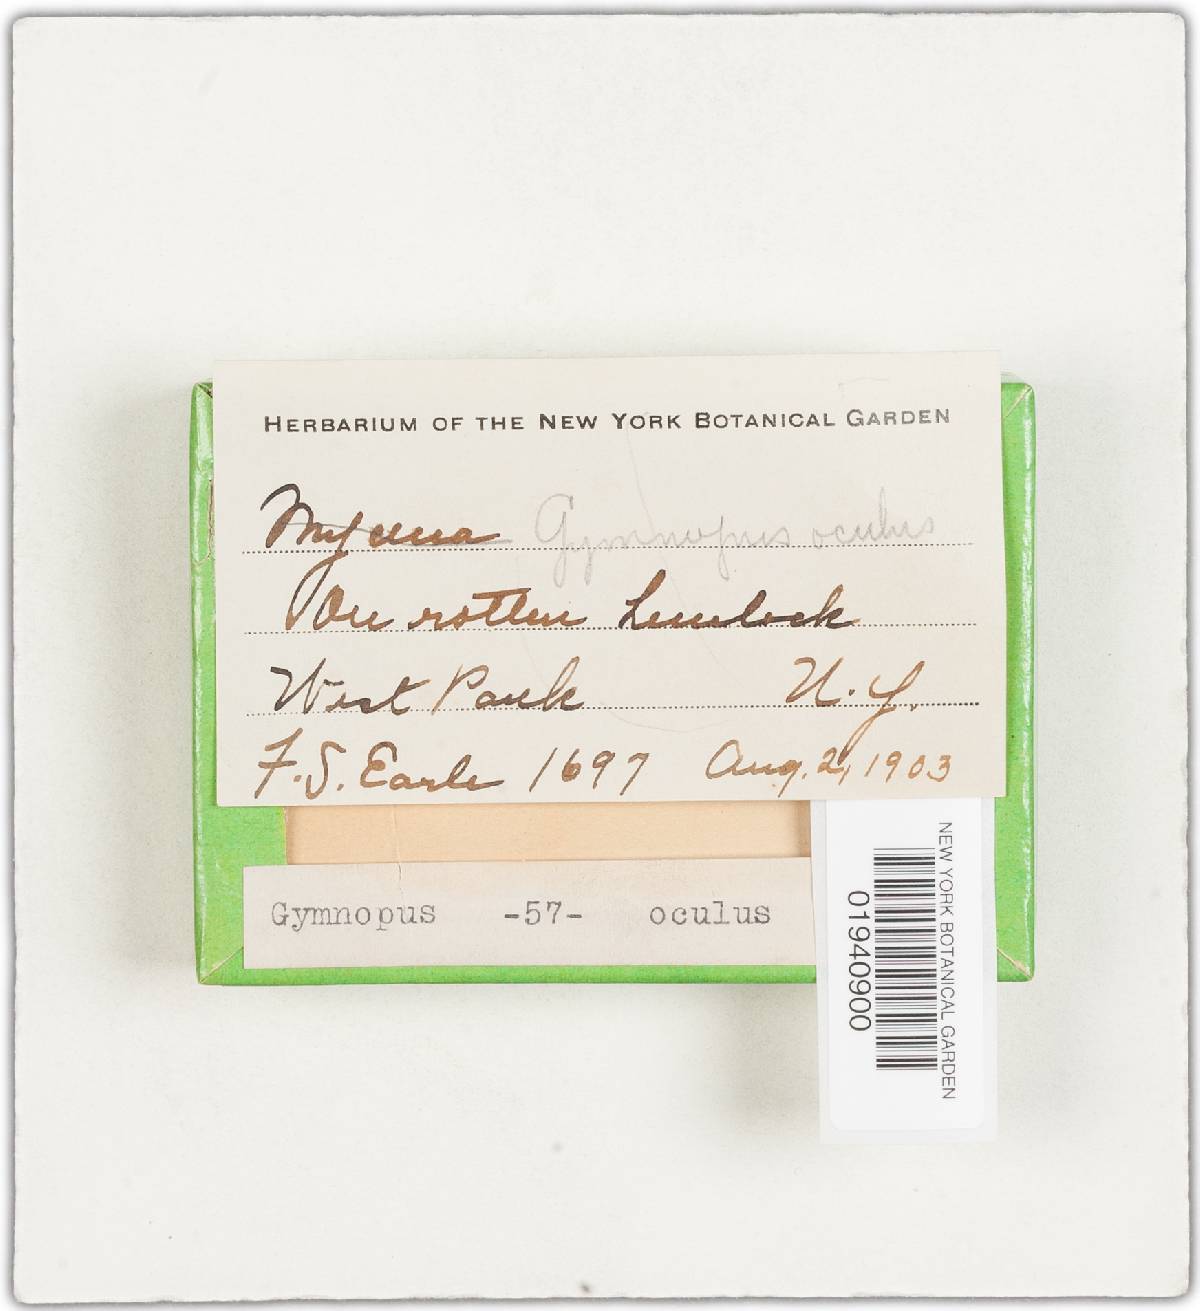 HERBARIUM OF THE NEW YORK BOTANICAL GARDEN
Mycena Gymnopus oculus
On rotten hemlock
West Park N.Y.
F.S. Earle 1697 Aug. 2, 1903
Gymnopus -57- oculus
NEW YORK BOTANICAL GARDEN
01940900